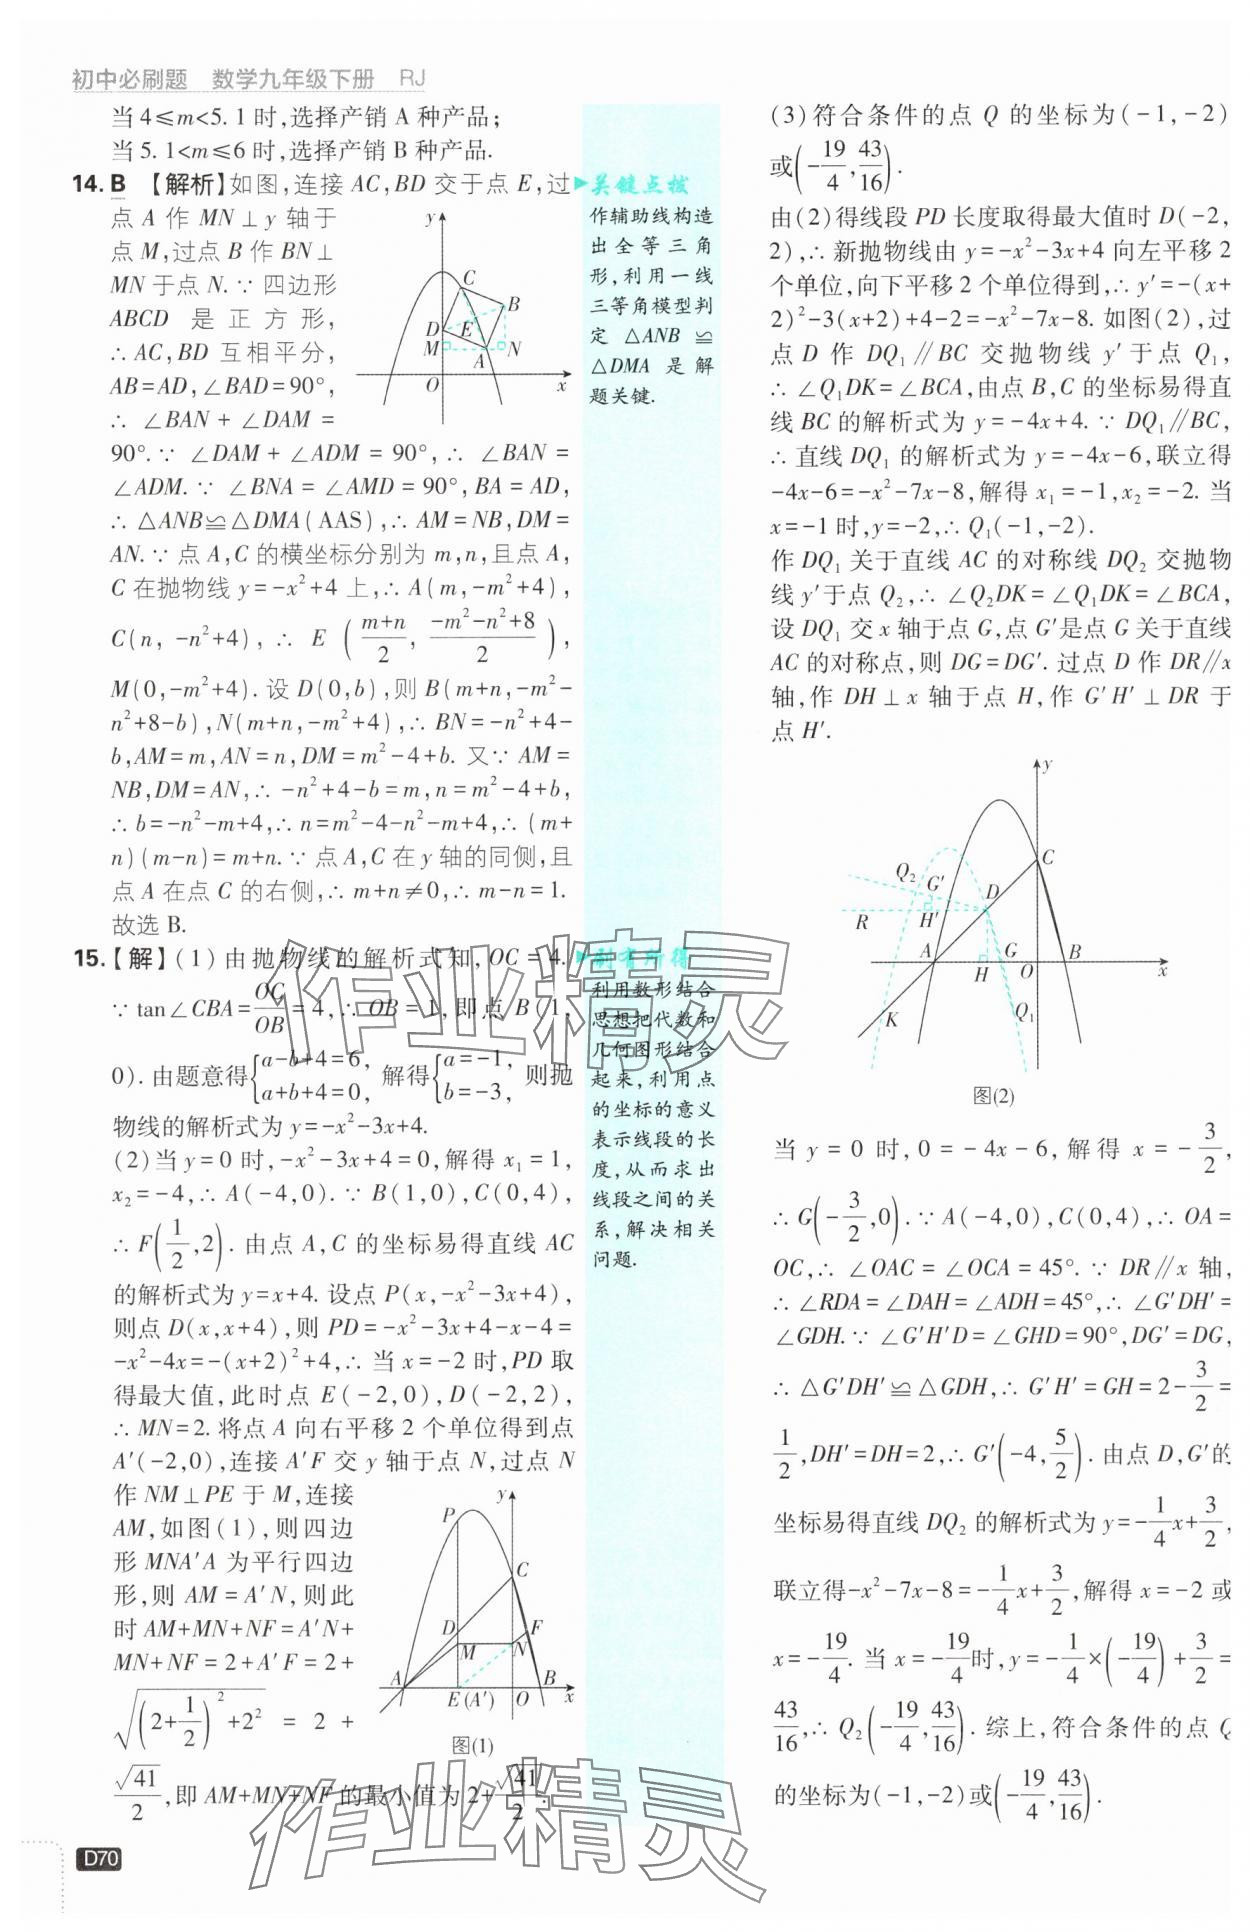 初中必刷题 数学九年级下册 RJ
当4≤m<5.1时,选择产销A种产品;
当5.1<m≤6时,选择产销B种产品.
14. B 【解析】如图,连接AC,BD交于点E,过
点A作MN⊥y轴于
点M,过点B作BN⊥
MN于点N.∵四边形
ABCD是正方形,
∴AC,BD互相平分,
AB=AD,∠BAD=90°,
∴∠BAN+∠DAM=
90°.∵∠DAM+∠ADM=90°,∴∠BAN=
∠ADM.∵∠BNA=∠AMD=90°,BA=AD,
∴△ANB≌△DMA(AAS),∴AM=NB,DM=
AN.∵点A,C的横坐标分别为m,n,且点A,
C在抛物线y=-x²+4上,∴A(m,-m²+4),
C(n,-n²+4),∴E((m+n)/2,(-m²-n²+8)/2),
M(0,-m²+4).设D(0,b),则B(m+n,-m²-
n²+8-b),N(m+n,-m²+4),∴BN=-n²+4-
b,AM=m,AN=n,DM=m²-4+b.又∵AM=
NB,DM=AN,∴-n²+4-b=m,n=m²-4+b,
∴b=-n²-m+4,∴n=m²-4-n²-m+4,∴(m+
n)(m-n)=m+n.∵点A,C在y轴的同侧,且
点A在点C的右侧,∴m+n≠0,∴m-n=1.
故选B.
y
C
B
D
E
M
A
N
O
x
15.【解】(1)由抛物线的解析式知,OC=4.
∵tan∠CBA=OC/OB=4,∴OB=1,即点B(1,
0).由题意得{a-b+4=6, a+b+4=0, 解得{a=-1, b=-3, 则抛
物线的解析式为y=-x²-3x+4.
(2)当y=0时,-x²-3x+4=0,解得x₁=1,
x₂=-4,∴A(-4,0).∵B(1,0),C(0,4),
∴F(1/2,2).由点A,C的坐标易得直线AC
的解析式为y=x+4.设点P(x,-x²-3x+4),
则点D(x,x+4),则PD=-x²-3x+4-x-4=
-x²-4x=-(x+2)²+4,∴当x=-2时,PD取
得最大值,此时点E(-2,0),D(-2,2),
∴MN=2.将点A向右平移2个单位得到点
A′(-2,0),连接A′F交y轴于点N,过点N
作NM⊥PE于M,连接
AM,如图(1),则四边
形MNA′A为平行四边
形,则AM=A′N,则此
时AM+MN+NF=A′N+
MN+NF=2+A′F=2+
√((2+1/2)²+2²)=2+
√41/2,即AM+MN+NF的最小值为2+√41/2.
y
P
C
D
F
M
N
A
E(A′)
O
B
x
图(1)
关键点拨
作辅助线构造
出全等三角
形,利用一线
三等角模型判
定△ANB≌
△DMA是解
题关键.
刷有所得
利用数形结合
思想把代数和
几何图形结合
起来,利用点
的坐标的意义
表示线段的长
度,从而求出
线段之间的关
系,解决相关
问题.
(3)符合条件的点Q的坐标为(-1,-2)
或(-19/4,43/16).
由(2)得线段PD长度取得最大值时D(-2,
2),∴新抛物线由y=-x²-3x+4向左平移2
个单位,向下平移2个单位得到,∴y′=-(x+
2)²-3(x+2)+4-2=-x²-7x-8.如图(2),过
点D作DQ₁∥BC交抛物线y′于点Q₁,
∴∠Q₁DK=∠BCA,由点B,C的坐标易得直
线BC的解析式为y=-4x+4.∵DQ₁∥BC,
∴直线DQ₁的解析式为y=-4x-6,联立得
-4x-6=-x²-7x-8,解得x₁=-1,x₂=-2.当
x=-1时,y=-2,∴Q₁(-1,-2).
作DQ₁关于直线AC的对称线DQ₂交抛物
线y′于点Q₂,∴∠Q₂DK=∠Q₁DK=∠BCA,
设DQ₁交x轴于点G,点G′是点G关于直线
AC的对称点,则DG=DG′.过点D作DR∥x
轴,作DH⊥x轴于点H,作G′H′⊥DR于
点H′.
y
C
Q₂
G′
D
R
H′
A
H
G
O
B
x
K
Q₁
图(2)
当y=0时,0=-4x-6,解得x=-3/2,
∴G(-3/2,0).∵A(-4,0),C(0,4),∴OA=
OC,∴∠OAC=∠OCA=45°.∵DR∥x轴,
∴∠RDA=∠DAH=∠ADH=45°,∴∠G′DH′=
∠GDH.∵∠G′H′D=∠GHD=90°,DG′=DG,
∴△G′DH′≌△GDH,∴G′H′=GH=2-3/2=
1/2,DH′=DH=2,∴G′(-4,5/2).由点D,G′的
坐标易得直线DQ₂的解析式为y=-1/4x+3/2,
联立得-x²-7x-8=-1/4x+3/2,解得x=-2或
x=-19/4.当x=-19/4时,y=-1/4×(-19/4)+3/2=
43/16,∴Q₂(-19/4,43/16).综上,符合条件的点Q
的坐标为(-1,-2)或(-19/4,43/16).
作业精灵
作业精灵
D70